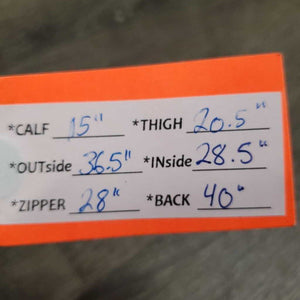 *CALF 15" *THIGH 20.5"
*OUTside 36.5" *INside 28.5"
*ZIPPER 28" *BACK 40"